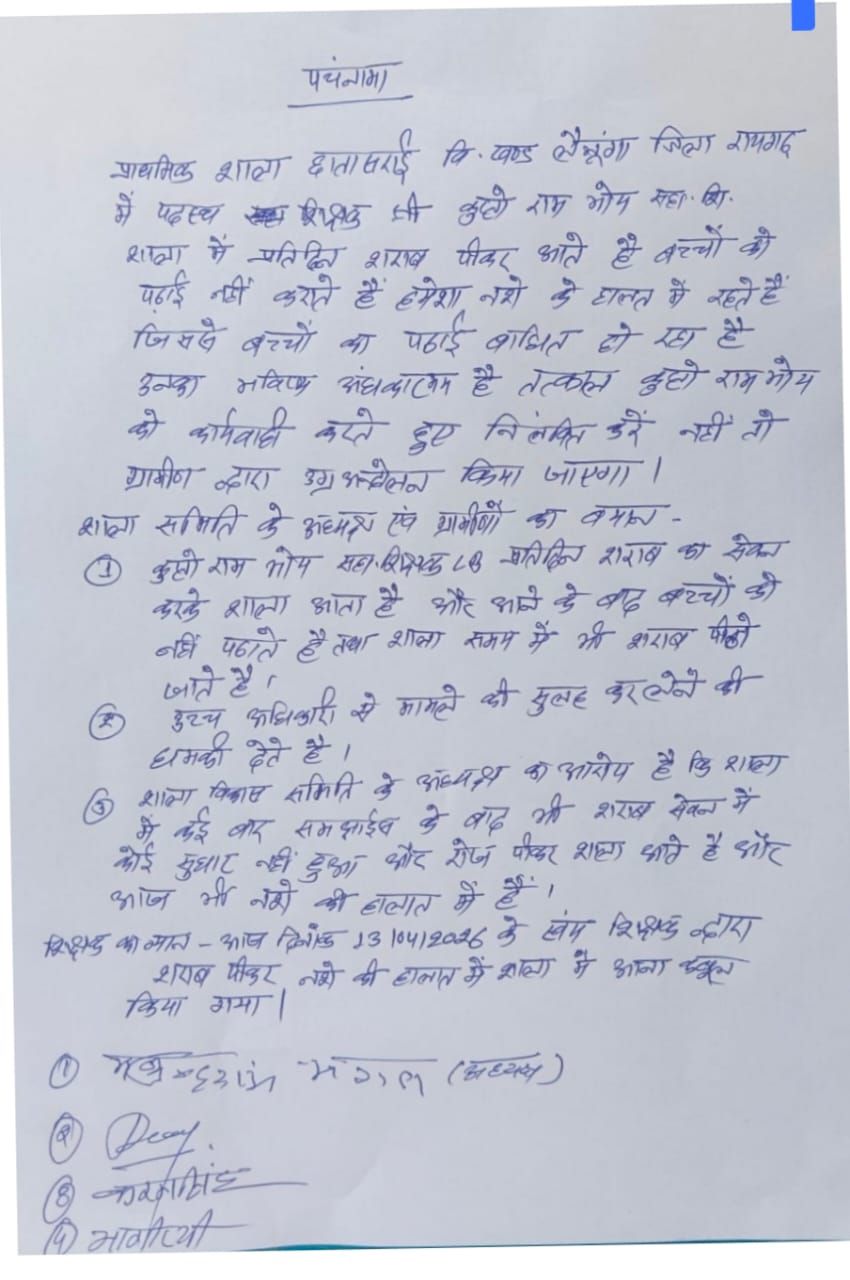 पचंनामा
प्राथमिक शाला दातासराई वि. खण्ड लैलूंगा जिला रायगढ
में पदस्थ शिक्षक श्री राम भोय सहा. शि.
शाला में प्रतिदिन शराब पीकर आते है बच्चों को
पढाई नहीं कराते हैं हमेशा नशे के हालत में रहते हैं
जिससे बच्चों का पढाई बाधित हो रहा है
उनका भविष्य है तत्काल राम भोय
को कार्यवाही करते हुए करें नहीं तो
ग्रामीण द्वारा उग्र किया जाएगा।
शाला समिति के अध्यक्ष एवं ग्रामीणों का बयान -
① राम भोय सहा. शिक्षक LB प्रतिदिन शराब का सेवन
करके शाला आता है और आने के बाद बच्चों को
नहीं पढाते है तथा शाला समय में भी शराब पीने
जाते है।
② उच्च अधिकारी से मामले को सुलह कर लेने की
धमकी देते है।
③ शाला विकास समिति के अध्यक्ष का आरोप है कि शाला
में कई बार के बाद भी शराब सेवन में
कोई सुधार नहीं हुआ और रोज पीकर शाला आते है और
आज भी नशे की हालात में हैं।
शिक्षक का - आज दिनाँक 13/04/2026 के शिक्षक द्वारा
शराब पीकर नशे की हालात में शाला में आना कबूल
किया गया।
① (अध्यक्ष)
②
③
④